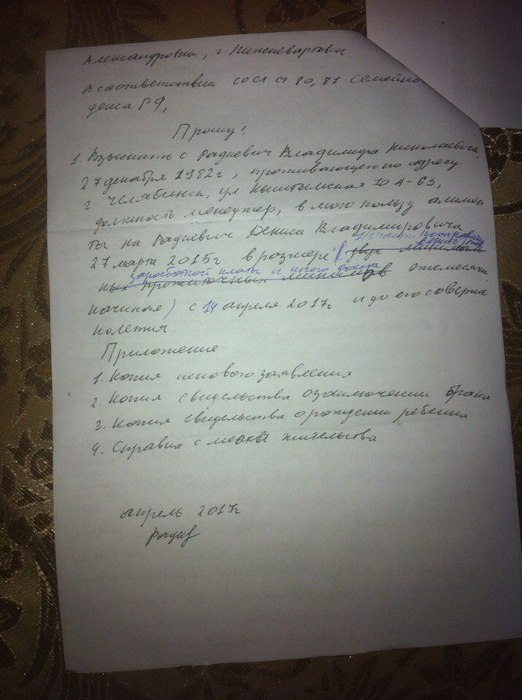 Александровна, г. Нижневартовск
В соответствии со ст. 80, 81 Семейно
декса РФ,
Прошу!
1. Взыскать с Радкевич Владимира Николаевича,
27 декабря 1982г, проживающего по адресу
г. Челябинск, ул Кыштымская 10 А-63,
должность менеджер, в мою пользу алимен
ты на Радкевич Дениса Владимировича
27 марта 2015г в размере двух минималь
заработной платы и иного дохода
ных прожиточных минимумов ежемесячн
начиная с 14 апреля 2017г и до его совершен
нолетия
Приложение
1. Копия искового заявления
2 Копия свидетельства о заключении брака
3. Копия свидетельства о рождении ребенка
4. Справка с места жительства
апрель 2017г